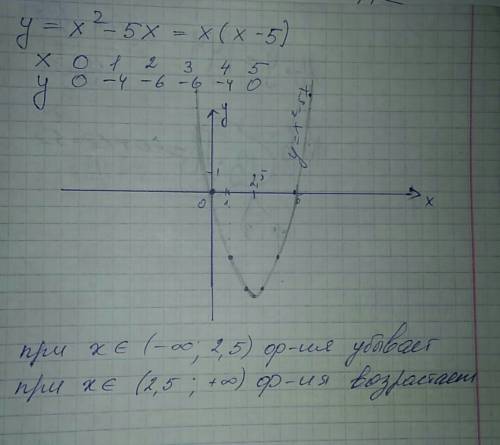 y = x² - 5x = x(x - 5)
x 0 1 2 3 4 5
y 0 -4 -6 -6 -4 0
y
y = x² - 5x
1
2,5
0 1 5 x
при x ∈ (-∞; 2,5) ф-ия убывает
при x ∈ (2,5; +∞) ф-ия возрастает